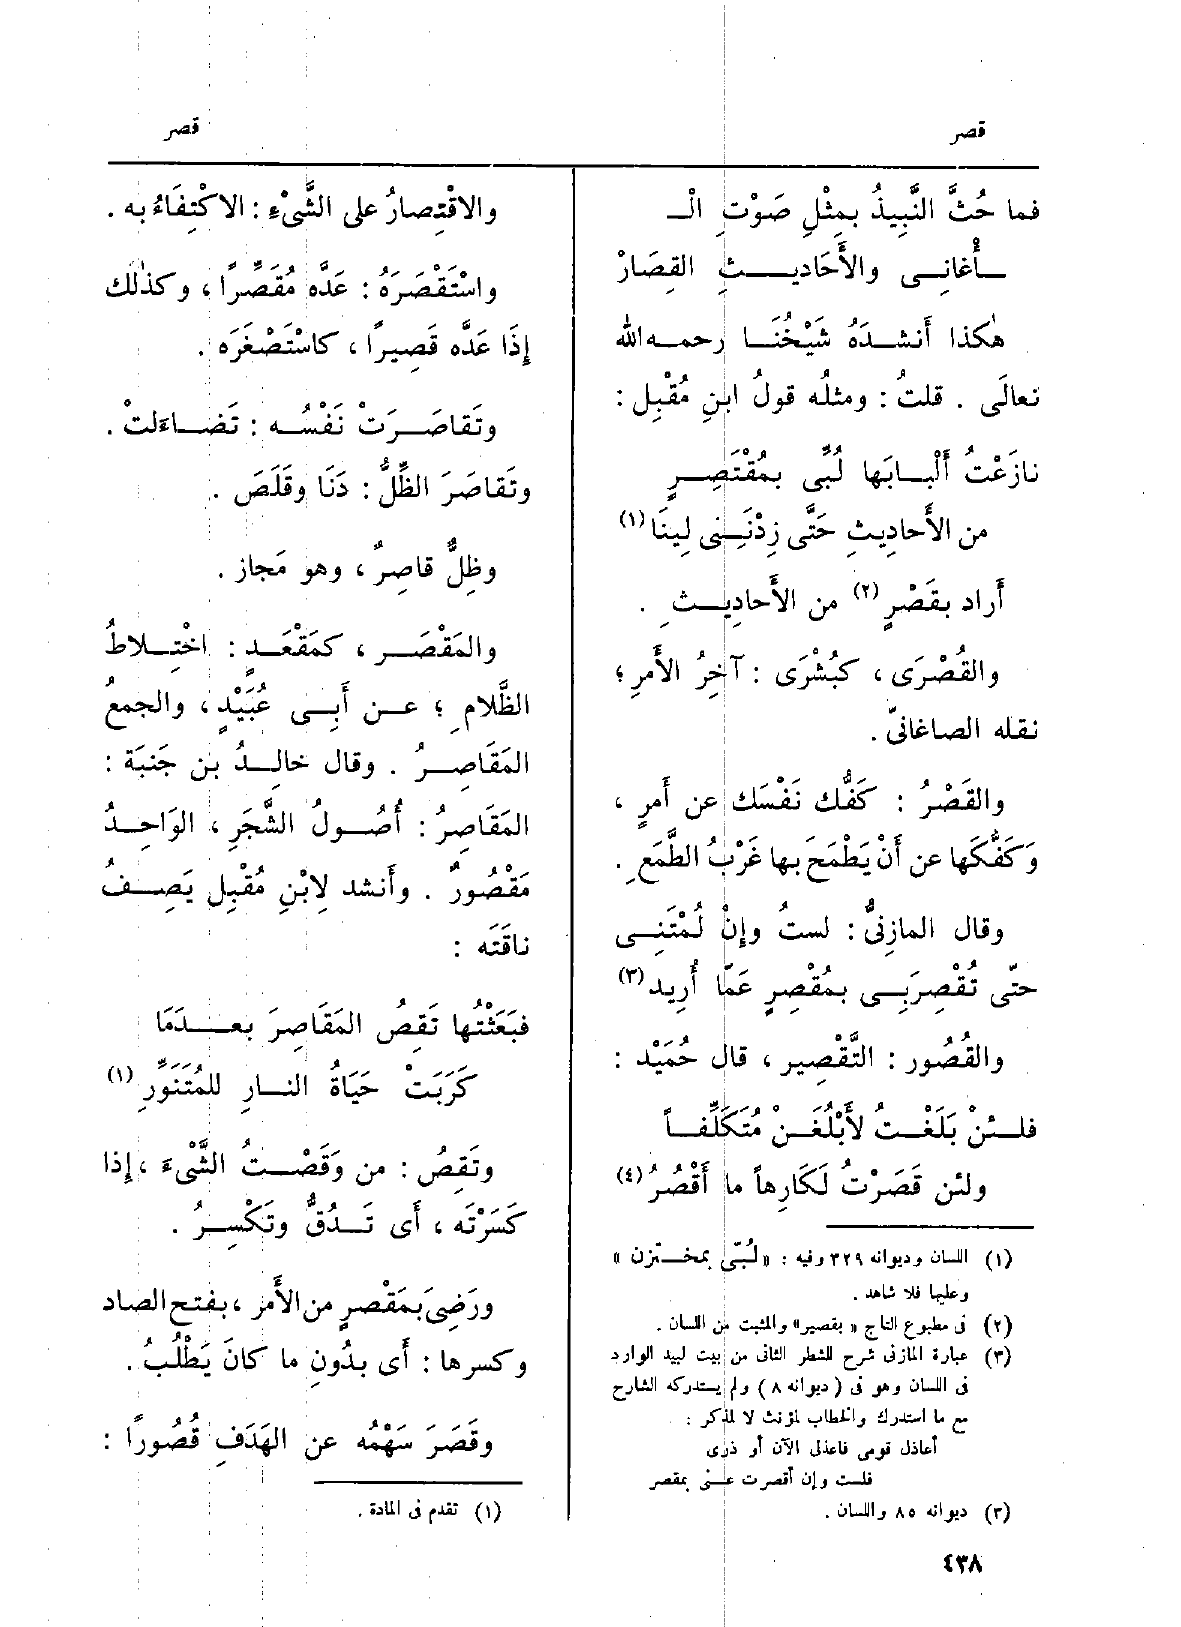 قصر
قصر
فما حُثَّ النَّبِيذُ بمِثْلِ صَوْتِ الْـ
ـأَغانِـى والأَحَادِيـــثِ القِصَارْ
هٰكذا أَنشــدَهُ شَيْخُنَــا رحمــه الله
تعالَى . قلتُ : ومثلُه قولُ ابنِ مُقْبِل :
نازَعْتُ أَلْبــابَها لُبِّى بمُقْتَصِــرٍ
من الأَحادِيثِ حَتَّى زِدْنَنِــى لِينَا (١)
أَراد بقَصْرٍ (٢) من الأَحادِيــثِ .
والقُصْرَى ، كبُشْرَى : آخِرُ الأَمرِ ؛
نقله الصاغانىّ .
والقَصْرُ : كَفُّك نَفْسَك عن أَمرٍ ،
وَكَفُّكَها عن أَنْ يَطْمَحَ بها غَرْبُ الطَّمَعِ .
وقال المازنىُّ : لستُ وإِنْ لُمْتَنِــى
حتّى تُقْصِرَبِــى بمُقْصِرٍ عَمّا أُرِيد (٣)
والقُصُور : التَّقْصِير ، قال حُمَيْد :
فلــئنْ بَلَغْــتُ لأَبْلُغَــنْ مُتَكَلِّفــاً
ولئن قَصَرْتُ لَكارِهاً ما أَقْصُرُ (٤)
(١) اللسان وديوانه ٣٢٩ وفيه : «لُبّى بمخــتزن»
وعليها فلا شاهد .
(٢) فى مطبوع التاج «بقصير» والمثبت من اللسان .
(٣) عبارة المازنى شرح للشطر الثانى من بيت لبيد الوارد
فى اللسان وهو فى (ديوانه ٨) ولم يستدركه الشارح
مع ما استدرك والخطاب لمؤنث لا لمذكر :
أعاذل قومى فاعذلى الآن أو ذرى
فلست وإن أقصرت عــنى بمقصر
(٣) ديوانه ٨٥ واللسان .
٤٣٨
والاقْتِصارُ على الشَّىْءِ : الاكْتِفَاءُ به .
واسْتَقْصَرَهُ : عَدَّه مُقَصِّرًا ، وكذٰلك
إِذَا عَدَّه قَصِيرًا ، كاسْتَصْغَرَه .
وتَقاصَــرَتْ نَفْسُــه : تَضــاءَلتْ .
وتَقاصَرَ الظِّلُّ : دَنَا وقَلَصَ .
وظِلٌّ قاصِرٌ ، وهو مَجاز .
والمَقْصَــر ، كمَقْعَــدٍ : اخْتِــلاطُ
الظَّلامِ ؛ عــن أَبِــى عُبَيْدٍ ، والجمعُ
المَقَاصِــرُ . وقال خالِــدُ بن جَنبَة :
المَقَاصِرُ : أُصُــولُ الشَّجَرِ ، الوَاحِــدُ
مَقْصُورٌ . وأَنشد لِابْنِ مُقْبِل يَصِــفُ
ناقَتَه :
فبَعَثْتُها تَقِصُ المَقَاصِرَ بعــدَمَا
كَرَبَتْ حَيَاةُ النــارِ للمُتَنَوِّرِ (١)
وتَقِصُ : من وَقَصْــتُ الشَّىْءَ ، إِذا
كَسَرْتَه ، أَى تَــدُقُّ وتَكْسِــرُ .
ورَضِىَ بمَقْصِرٍ من الأَمر ، بفتح الصاد
وكسرها : أَى بدُونِ ما كانَ يَطْلُبُ .
وقَصَرَ سَهْمُه عن الهَدَفِ قُصُورًا :
(١) تقدم فى المادة .